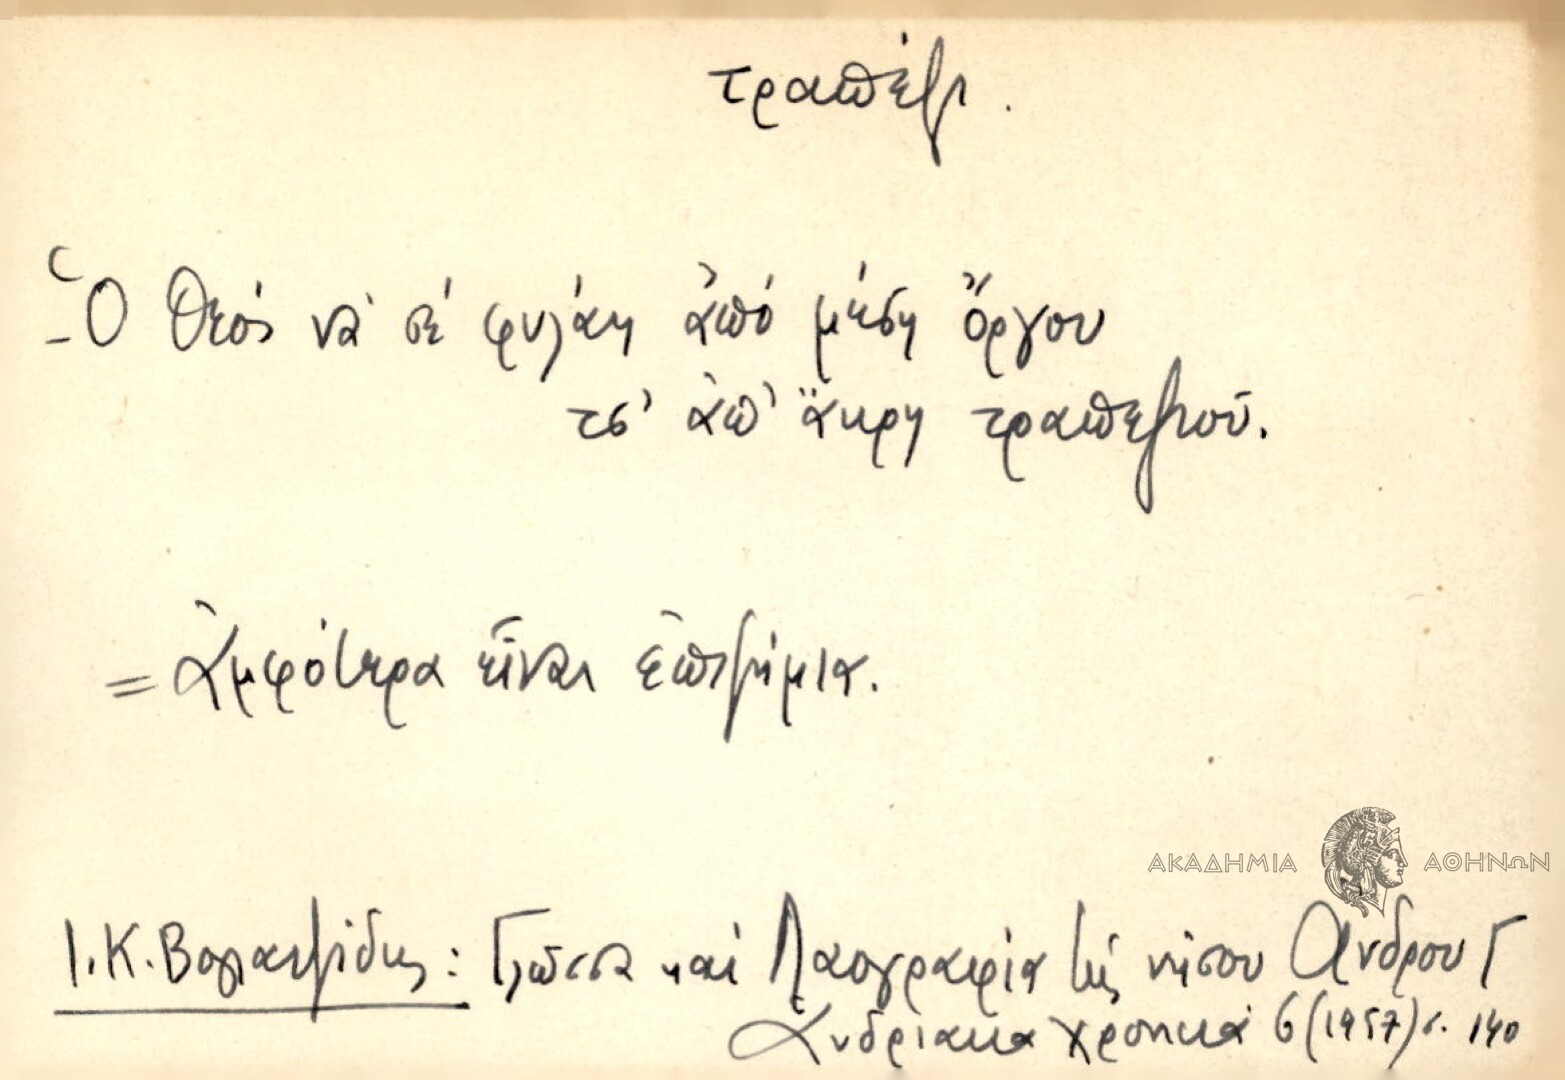 τραπέζι.
Ὁ Θεός νά σέ φυλάη ἀπό μέση ὄργου
τσ' ἀπ' ἄκρη τραπεζιοῦ.
= Ἀμφότερα εἶναι ἐπιζήμια.
ΑΚΑΔΗΜΙΑ ΑΘΗΝΩΝ
Ι. Κ. Βογιατζίδης: Γλῶσσα καί Λαογραφία τῆς νήσου Ἄνδρου Γ
Ἀνδριακά χρονικά 6 (1957) σ. 140